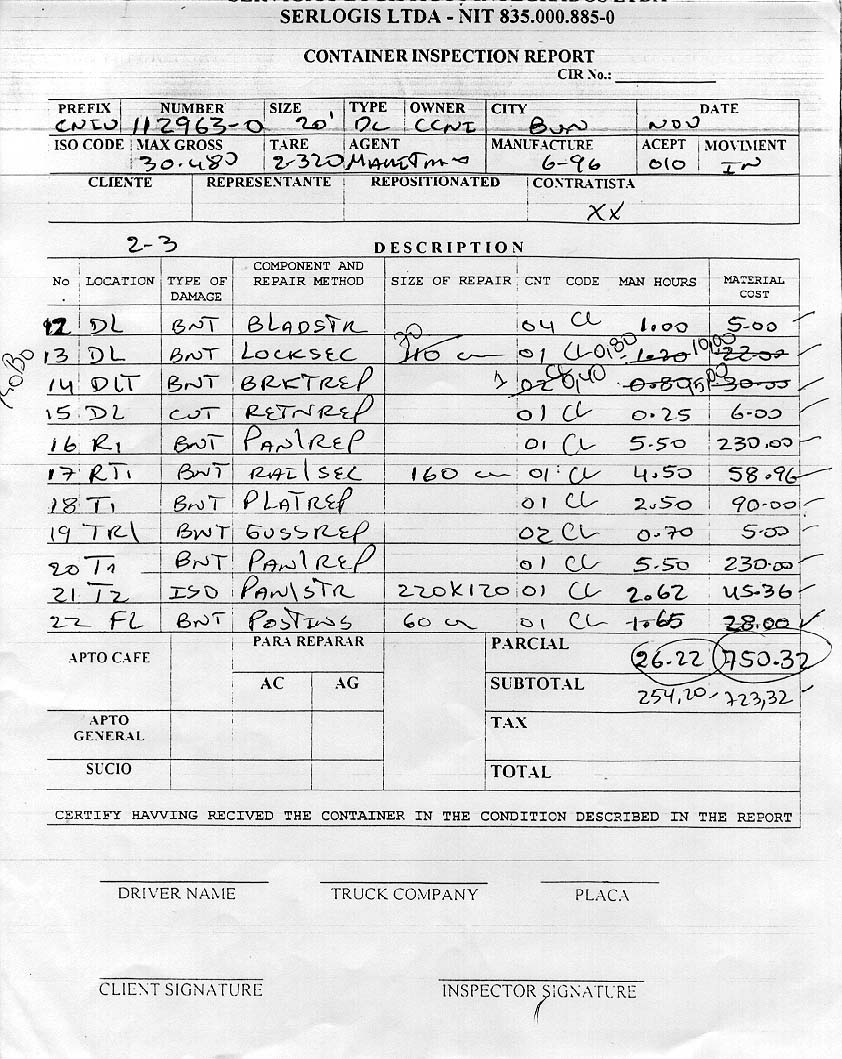 SERLOGIS LTDA - NIT 835.000.885-0
CONTAINER INSPECTION REPORT
CIR No.:
PREFIX NUMBER SIZE TYPE OWNER CITY DATE
CNIU 112963-0 20' DC CCNI BUN NOV
ISO CODE MAX GROSS TARE AGENT MANUFACTURE ACEPT MOVIMENT
30.480 2-320 6-96 010 IN
CLIENTE REPRESENTANTE REPOSITIONATED CONTRATISTA
XX
2-3 DESCRIPTION
No. LOCATION TYPE OF DAMAGE COMPONENT AND REPAIR METHOD SIZE OF REPAIR CNT CODE MAN HOURS MATERIAL COST
12 DL BNT BLADSTR 04 CL 1.00 5-00
ROBO 13 DL BNT LOCKSEC 30 110 cm 01 CL 0,80 1.20 10,00 22.00
14 DLT BNT BRKTREP 1 02 CL 0,40 0.89 5,00 30.00
15 DL CUT RETNREP 01 CL 0.25 6-00
16 R1 BNT PANLREP 01 CL 5.50 230.00
17 RT1 BNT RAILSEC 160 cm 01 CL 4.50 58.96
18 T1 BNT PLATREP 01 CL 2.50 90-00
19 TRL BNT GUSSREP 02 CL 0.70 5.00
20 T1 BNT PANLREP 01 CL 5.50 230.00
21 T2 ISO PANLSTR 220X120 01 CL 2.62 45.36
22 FL BNT POSTINS 60 cm 01 CL 1.65 28.00
APTO CAFE PARA REPARAR PARCIAL 26.22 750.32
AC AG SUBTOTAL 254,20 723,32
APTO GENERAL TAX
SUCIO TOTAL
CERTIFY HAVVING RECIVED THE CONTAINER IN THE CONDITION DESCRIBED IN THE REPORT
DRIVER NAME TRUCK COMPANY PLACA
CLIENT SIGNATURE INSPECTOR SIGNATURE